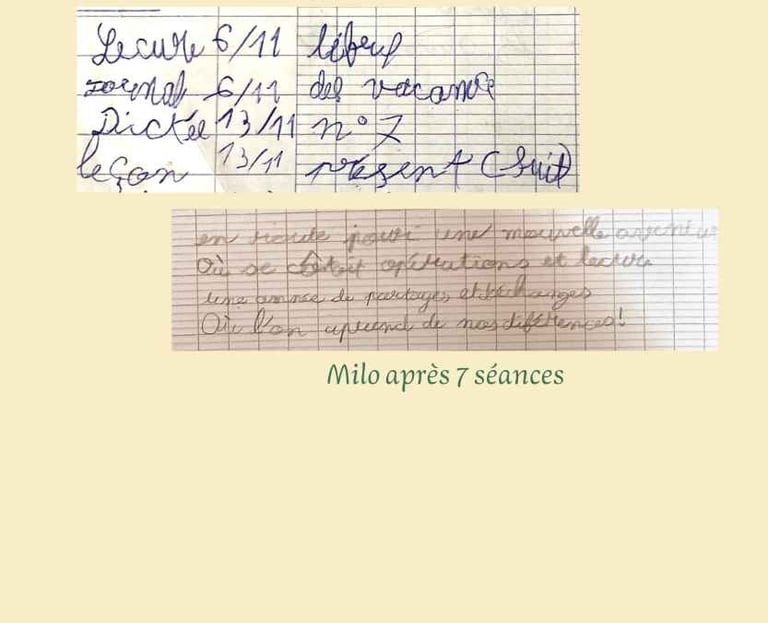 Lecure 6/11
Journal 6/11 des vacance
Dictée 13/11 n°7
leçon 13/11 présent (suit)
en route pour une nouvelle
Où se côtoit opérations et lecture
une année de partages et d'échanges
Où l'on aprend de nos différences!
Milo après 7 séances